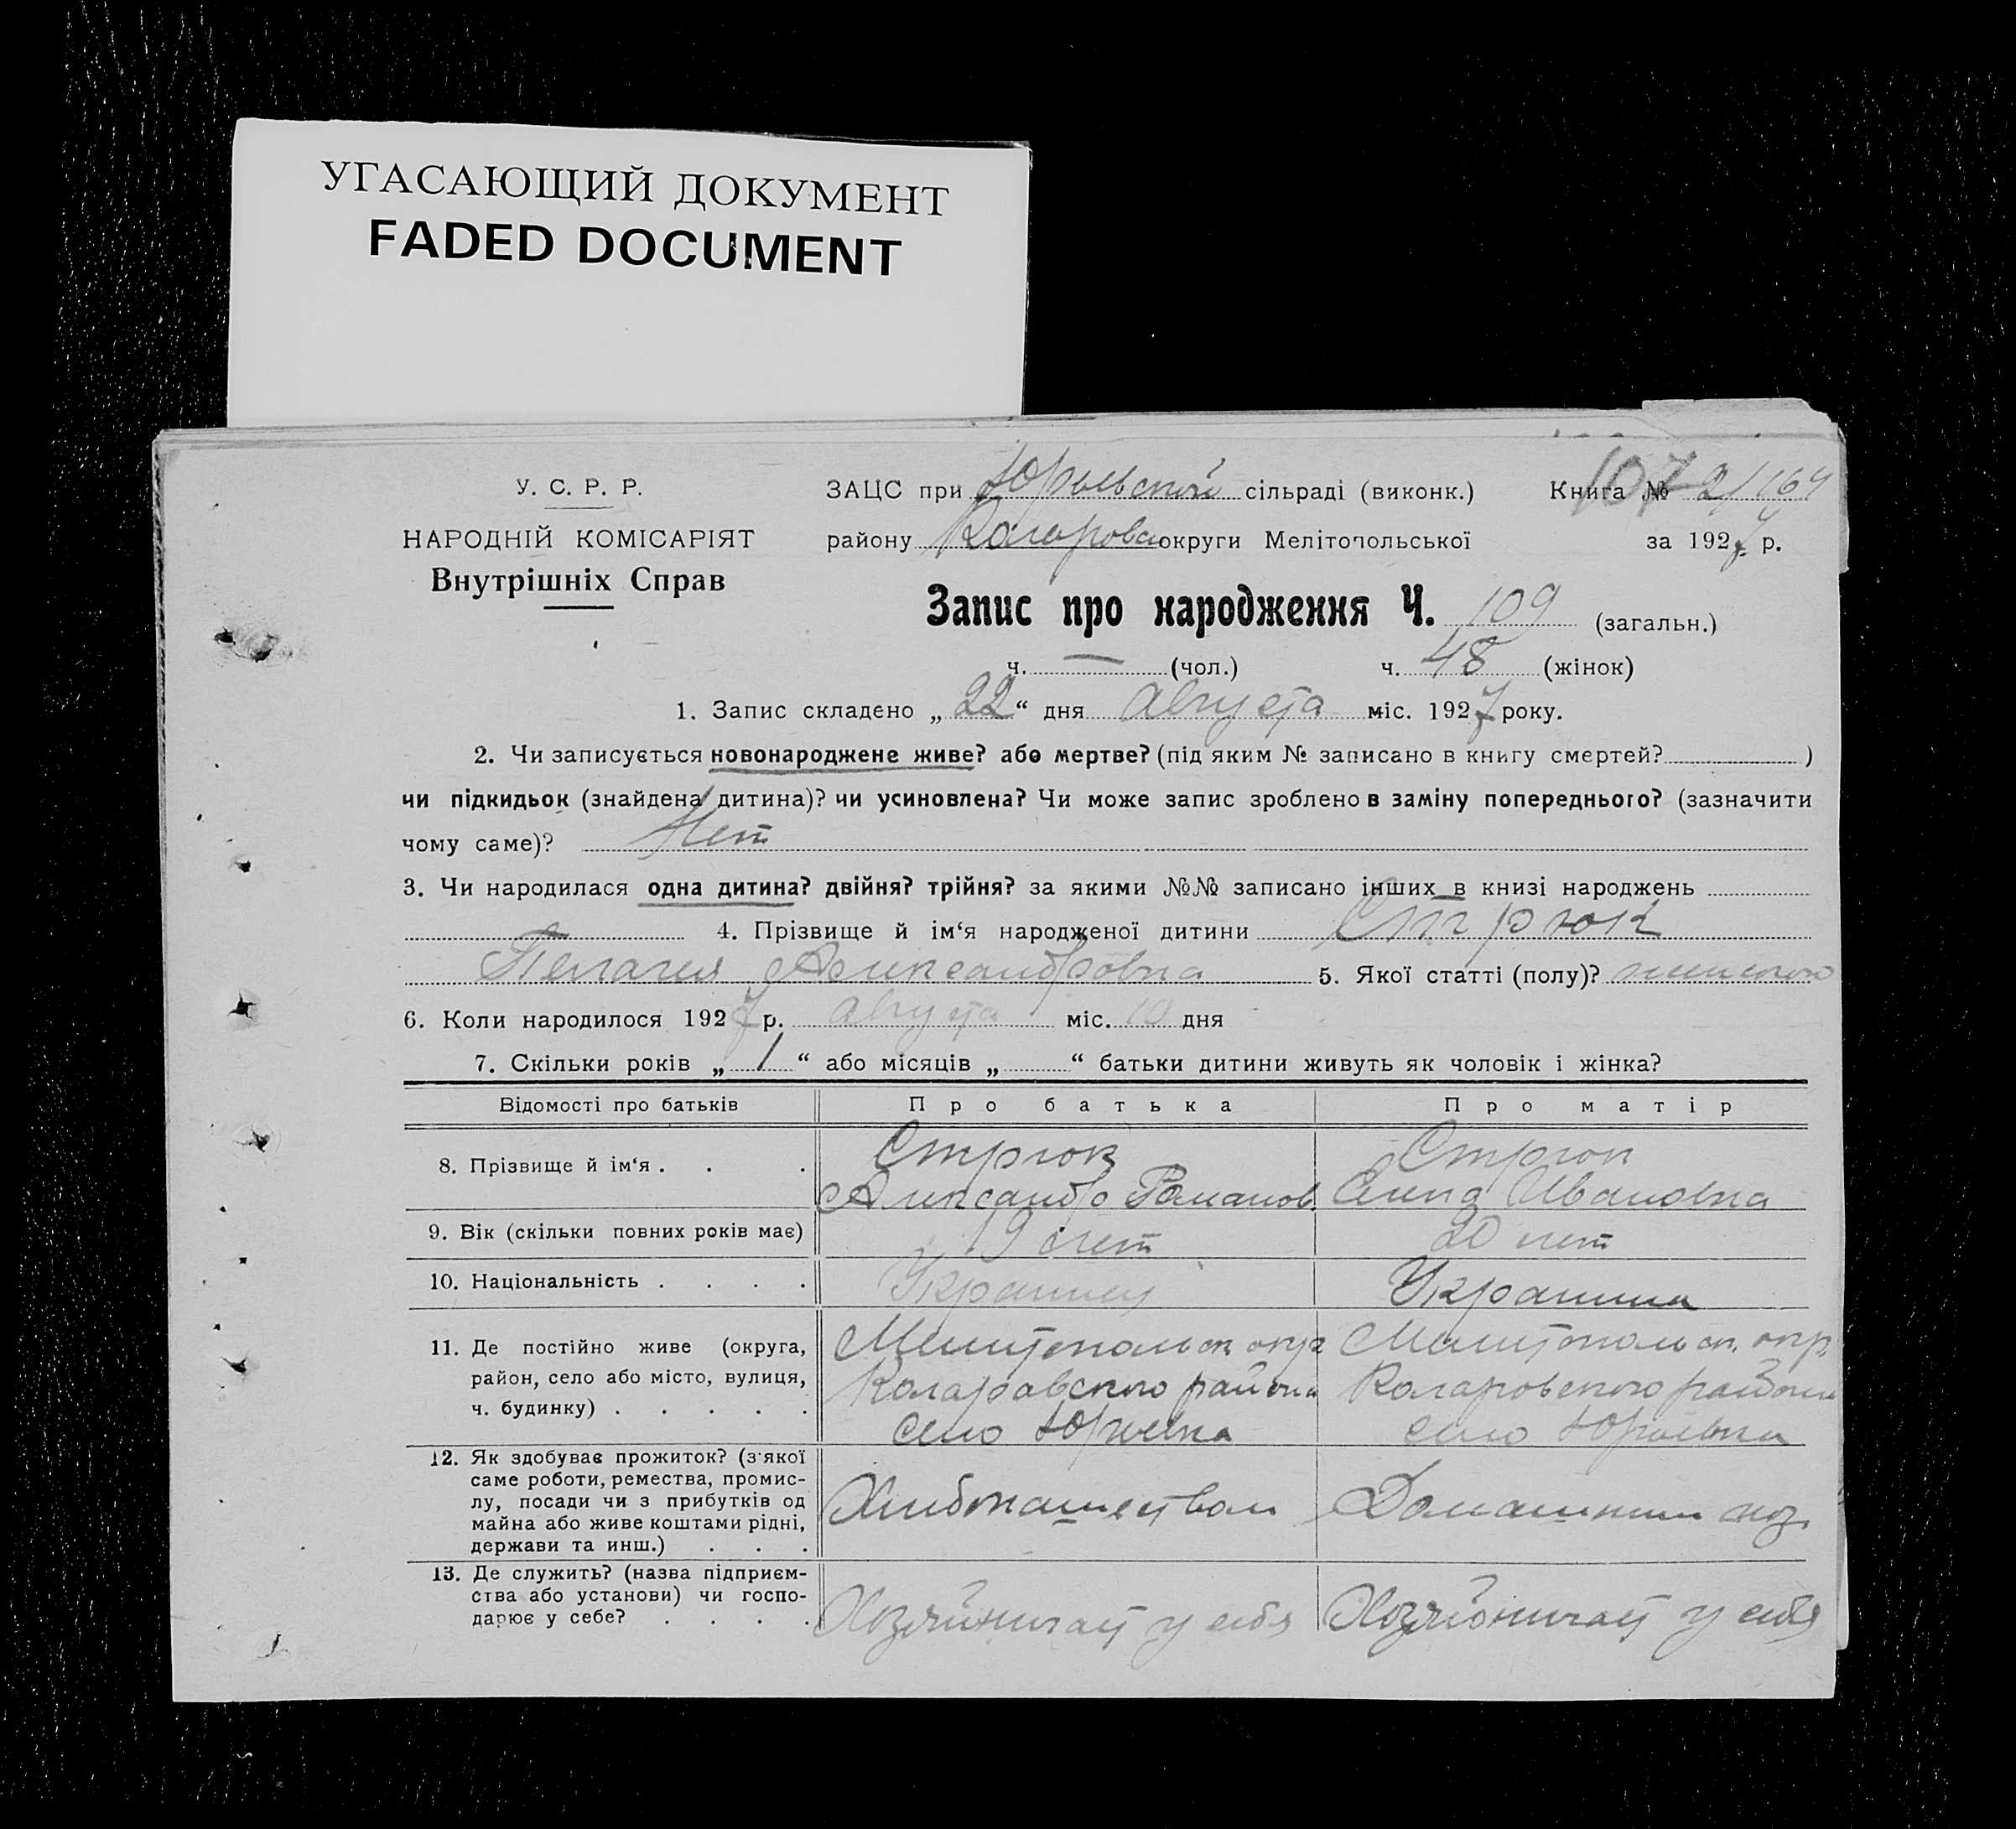 УГАСАЮЩИЙ ДОКУМЕНТ
FADED DOCUMENT
У. С. Р. Р.
НАРОДНІЙ КОМІСАРІЯТ
Внутрішніх Справ
ЗАЦС при Юрьевской сільраді (виконк.) Книга № 2/164
107
району Коларовск округи Мелітопольської за 1927 р.
Запис про народження Ч. 109 (загальн.)
ч. — (чол.) ч. 48 (жінок)
1. Запис складено „22“ дня Августа міс. 1927 року.
2. Чи записується новонароджене живе? або мертве? (під яким № записано в книгу смертей? )
чи підкидьок (знайдена дитина)? чи усиновлена? Чи може запис зроблено в заміну попереднього? (зазначити
чому саме)? Нет
3. Чи народилася одна дитина? двійня? трійня? за якими №№ записано інших в книзі народжень
4. Прізвище й ім‘я народженої дитини Стрюк
Пелагея Александровна 5. Якої статті (полу)? женского
6. Коли народилося 1927 р. Августа міс. 10 дня
7. Скільки років „1“ або місяців „ “ батьки дитини живуть як чоловік і жінка?
Відомості про батьків Про батька Про матір
8. Прізвище й ім‘я . . . Стрюк Стрюк
Александр Романов. Анна Ивановна
9. Вік (скільки повних років має) 19 лет 20 лет
10. Національність . . . . Украинец Украинка
11. Де постійно живе (округа, Мелитопольск окр Мелитопольск. окр.
район, село або місто, вулиця, Коларовского района Коларовского района
ч. будинку) . . . . . село Юрьевка село Юрьевка
12. Як здобуває прожиток? (з‘якої
саме роботи, ремества, промис-
лу, посади чи з прибутків од Хлебопашеством Домашним хоз.
майна або живе коштами рідні,
держави та инш.) . . .
13. Де служить? (назва підприєм-
ства або установи) чи госпо-
дарює у себе? . . . . Хозяйничает у себя Хозяйничает у себя